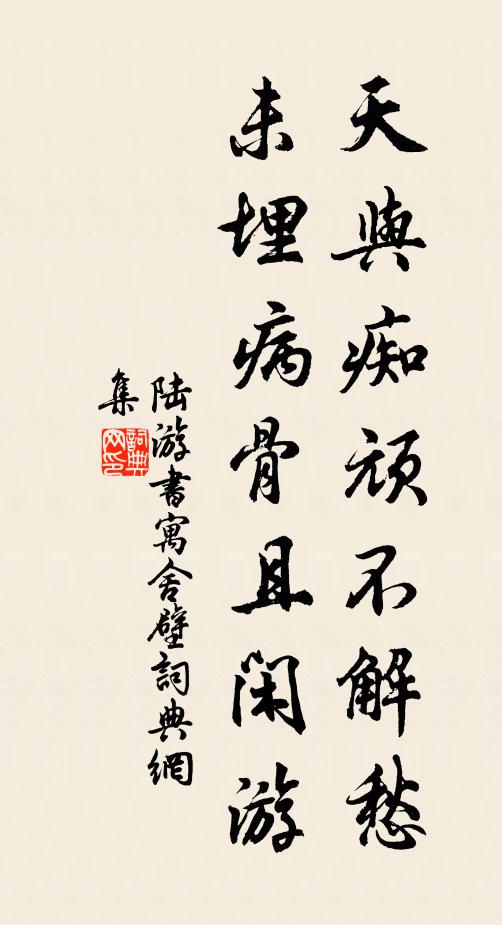 天與痴頑不解愁
未埋病骨且閑游
陸游書寓舍壁詞典網
集
詞典
网印